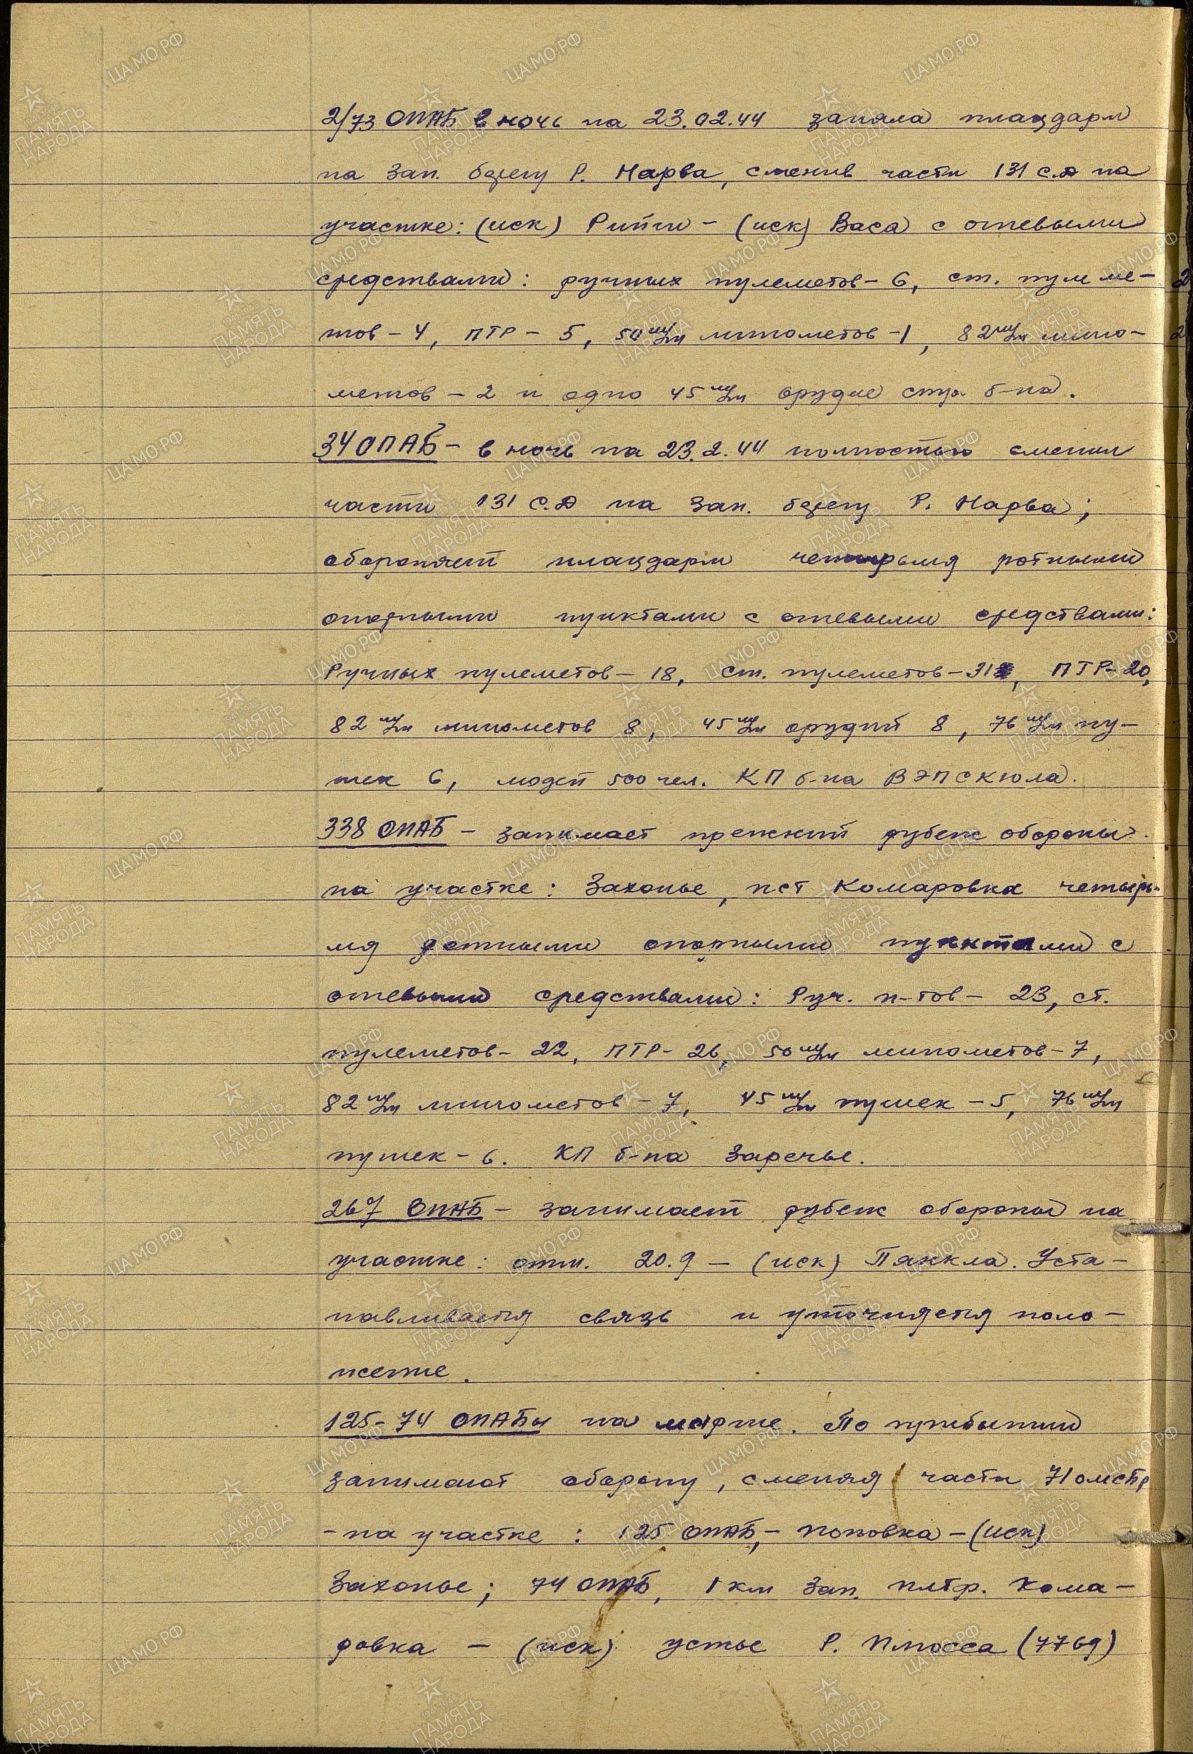 2/73 ОПАБ в ночь на 23.02.44 заняла плацдарм
на зап. берегу р. Нарва, сменив части 131 с.д на
участке: (иск) Рийги – (иск) Васа с огневыми
средствами: ручных пулеметов – 6, ст. пулеме-
тов – 4, ПТР – 5, 50 м/м минометов – 1, 82 м/м мино-
метов – 2 и одно 45 м/м орудие стр. б-на.
34 ОПАБ – в ночь на 23.2.44 полностью сменил
части 131 с.д на зап. берегу р. Нарва;
обороняет плацдарм четырьмя ротными
опорными пунктами с огневыми средствами:
Ручных пулеметов – 18, ст. пулеметов – 31, ПТР – 20,
82 м/м минометов 8, 45 м/м орудий 8, 76 м/м пу-
шек 6, людей 500 чел. КП б-на ВЭПСКЮЛА.
338 ОПАБ – занимает прежний рубеж обороны
на участке: Захонье, пст Комаровка четырь-
мя ротными опорными пунктами с
огневыми средствами: Руч. п-тов – 23, ст.
пулеметов – 22, ПТР – 26, 50 м/м минометов – 7,
82 м/м минометов – 7, 45 м/м пушек – 5, 76 м/м
пушек – 6. КП б-на Заречье.
267 ОПАБ – занимает рубеж обороны на
участке: отм. 20.9 – (иск) Пянкла. Уста-
навливается связь и уточняется поло-
жение.
125 – 74 ОПАБы на марше. По прибытии
занимают оборону, сменяя части 71 омсбр
– на участке: 125 ОПАБ, – Поповка – (иск)
Захонье; 74 ОПАБ, 1 км зап. Кома-
ровка – (иск) устье р. Плюсса (7769)
ЦАМО.РФ
ПАМЯТЬ НАРОДА